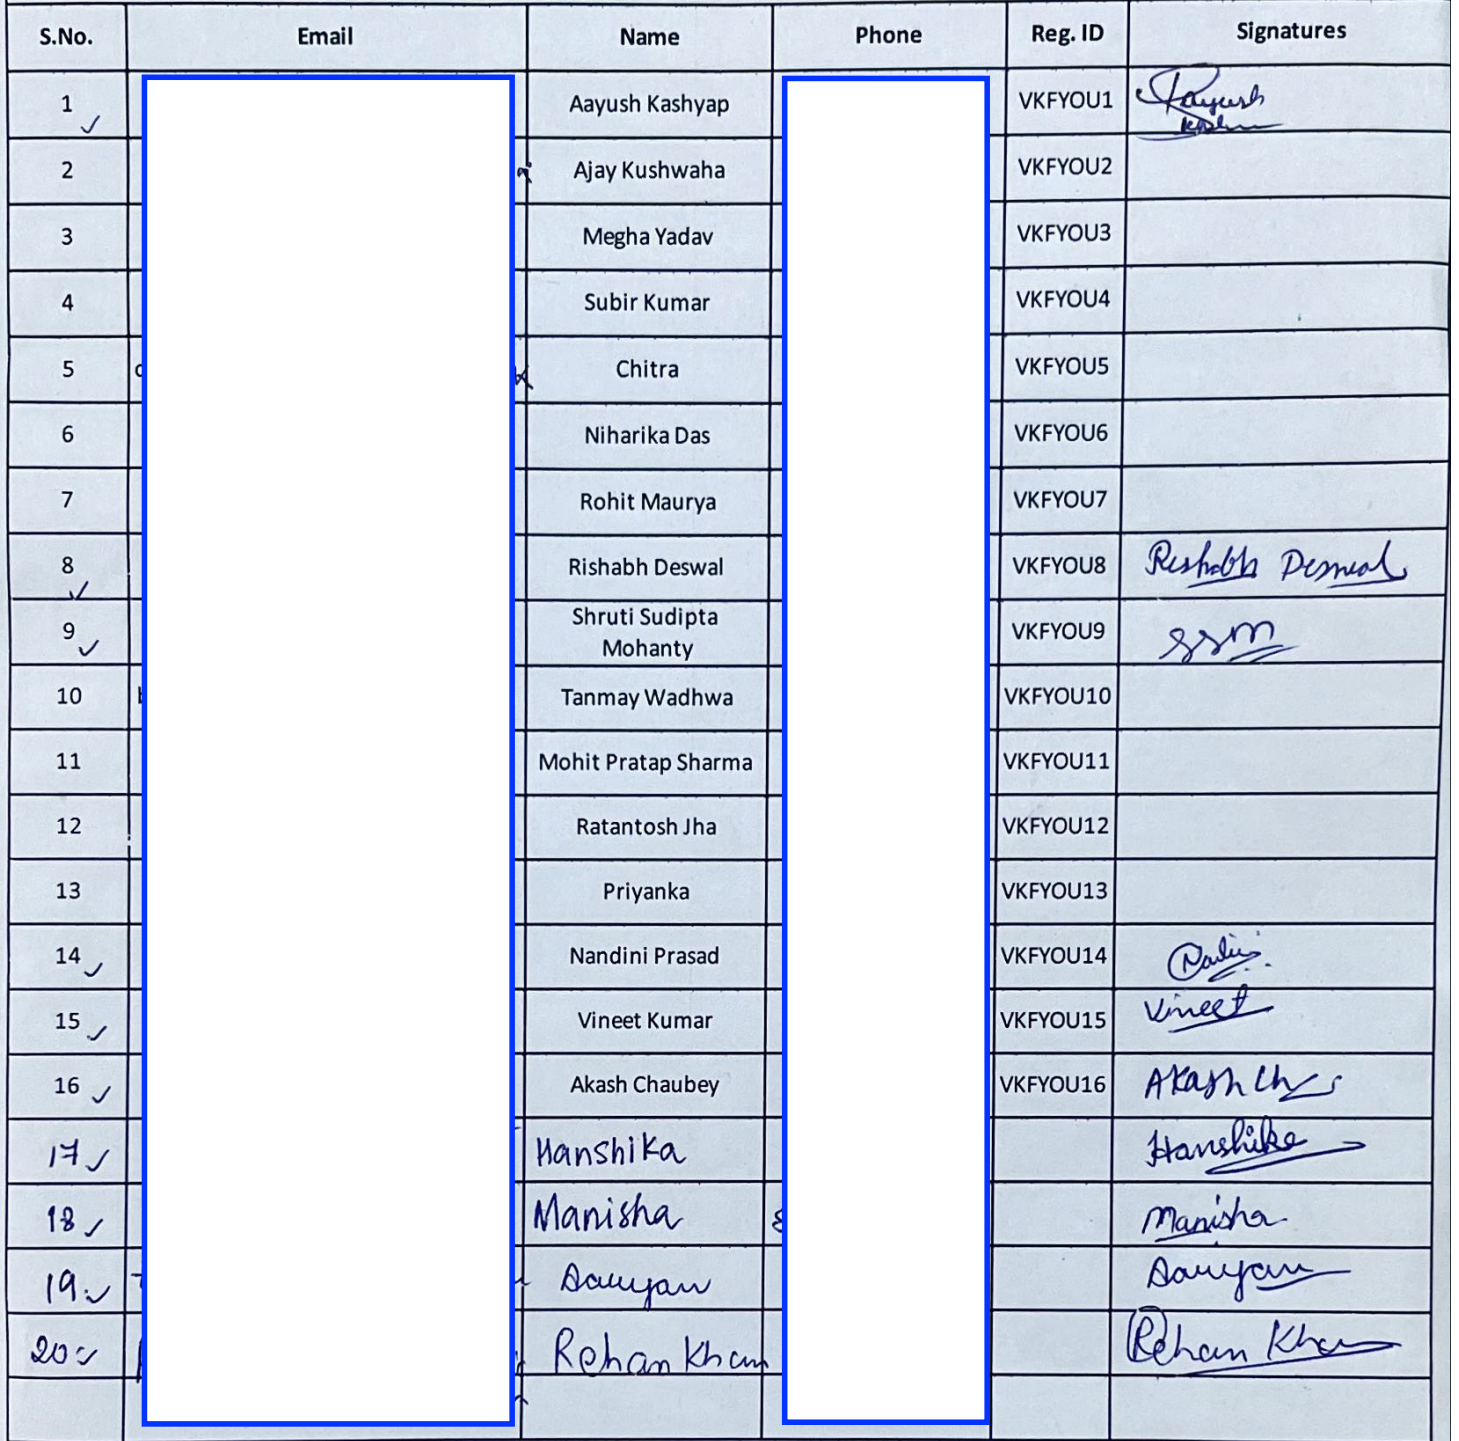 S.No. Email Name Phone Reg. ID Signatures
1 Aayush Kashyap VKFYOU1 Aayush
2 Ajay Kushwaha VKFYOU2
3 Megha Yadav VKFYOU3
4 Subir Kumar VKFYOU4
5 Chitra VKFYOU5
6 Niharika Das VKFYOU6
7 Rohit Maurya VKFYOU7
8 Rishabh Deswal VKFYOU8 Rishabh Deswal
9 Shruti Sudipta VKFYOU9 SSM
Mohanty
10 Tanmay Wadhwa VKFYOU10
11 Mohit Pratap Sharma VKFYOU11
12 Ratantosh Jha VKFYOU12
13 Priyanka VKFYOU13
14 Nandini Prasad VKFYOU14
15 Vineet Kumar VKFYOU15 Vineet
16 Akash Chaubey VKFYOU16 Akash Ch
17 Hanshika Hanshika
18 Manisha Manisha
19.
20 Rehan Khan Rehan Khan